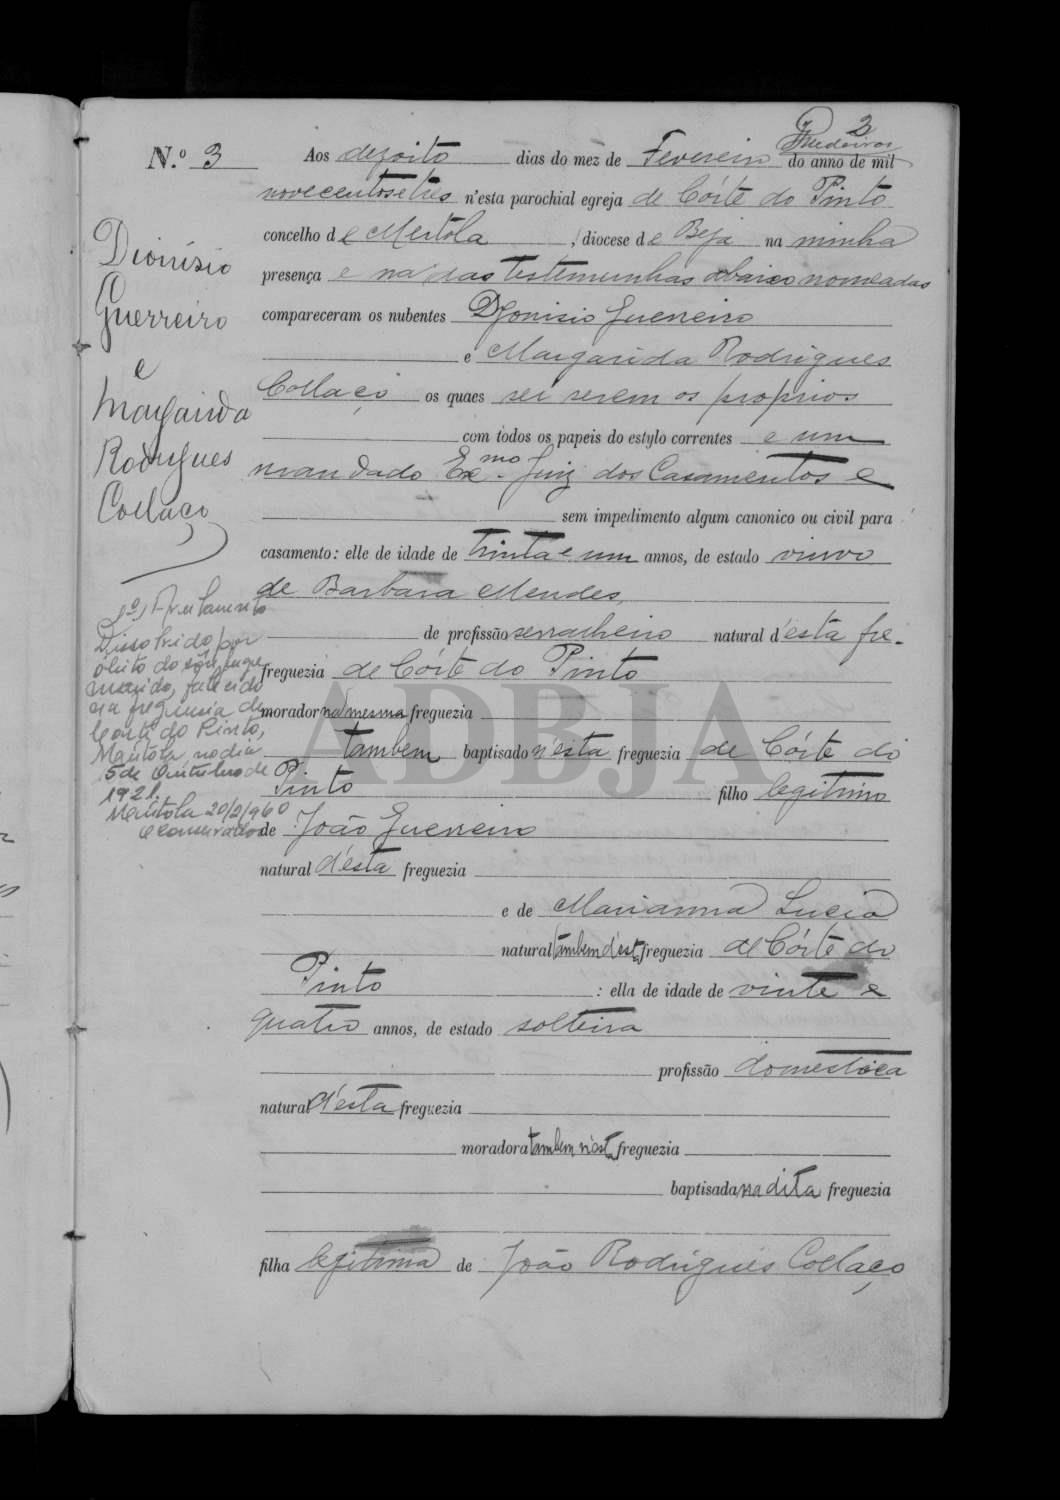 2
Medeiros
N.º 3 Aos dezoito dias do mez de Fevereiro do anno de mil
novecentos e tres n'esta parochial egreja de Córte do Pinto
concelho de Mertola, diocese de Beja na minha
presença e na das testemunhas abaixo nomeadas
compareceram os nubentes Dyonisio Guerreiro
e Margarida Rodrigues
Collaço os quaes sei serem os proprios
com todos os papeis do estylo correntes e um
mandado Exmo. Juiz dos Casamentos e
sem impedimento algum canonico ou civil para
casamento: elle de idade de trinta e um annos, de estado viuvo
de Barbara Mendes,
de profissão serralheiro natural d'esta fre-
freguezia de Córte do Pinto
morador na mesma freguezia
tambem baptisado n'esta freguezia de Córte do
Pinto filho legitimo
de João Guerreiro
natural d'esta freguezia
e de Marianna Lucia
natural tambem d'esta freguezia de Córte do
Pinto : ella de idade de vinte e
quatro annos, de estado solteira
profissão domestica
natural d'esta freguezia
moradora tambem n'esta freguezia
baptisada na dita freguezia
filha legitima de João Rodrigues Collaço
Dionisio
Guerreiro
e
Margarida
Rodrigues
Collaço
1º) Averbamento
Dissolvido por
óbito do cônjuge
marido, falecido
na freguesia de
Corte do Pinto,
Mértola no dia
5 de Outubro de
1921.
Mértola 20/2/960
O Conservador
ADBJA